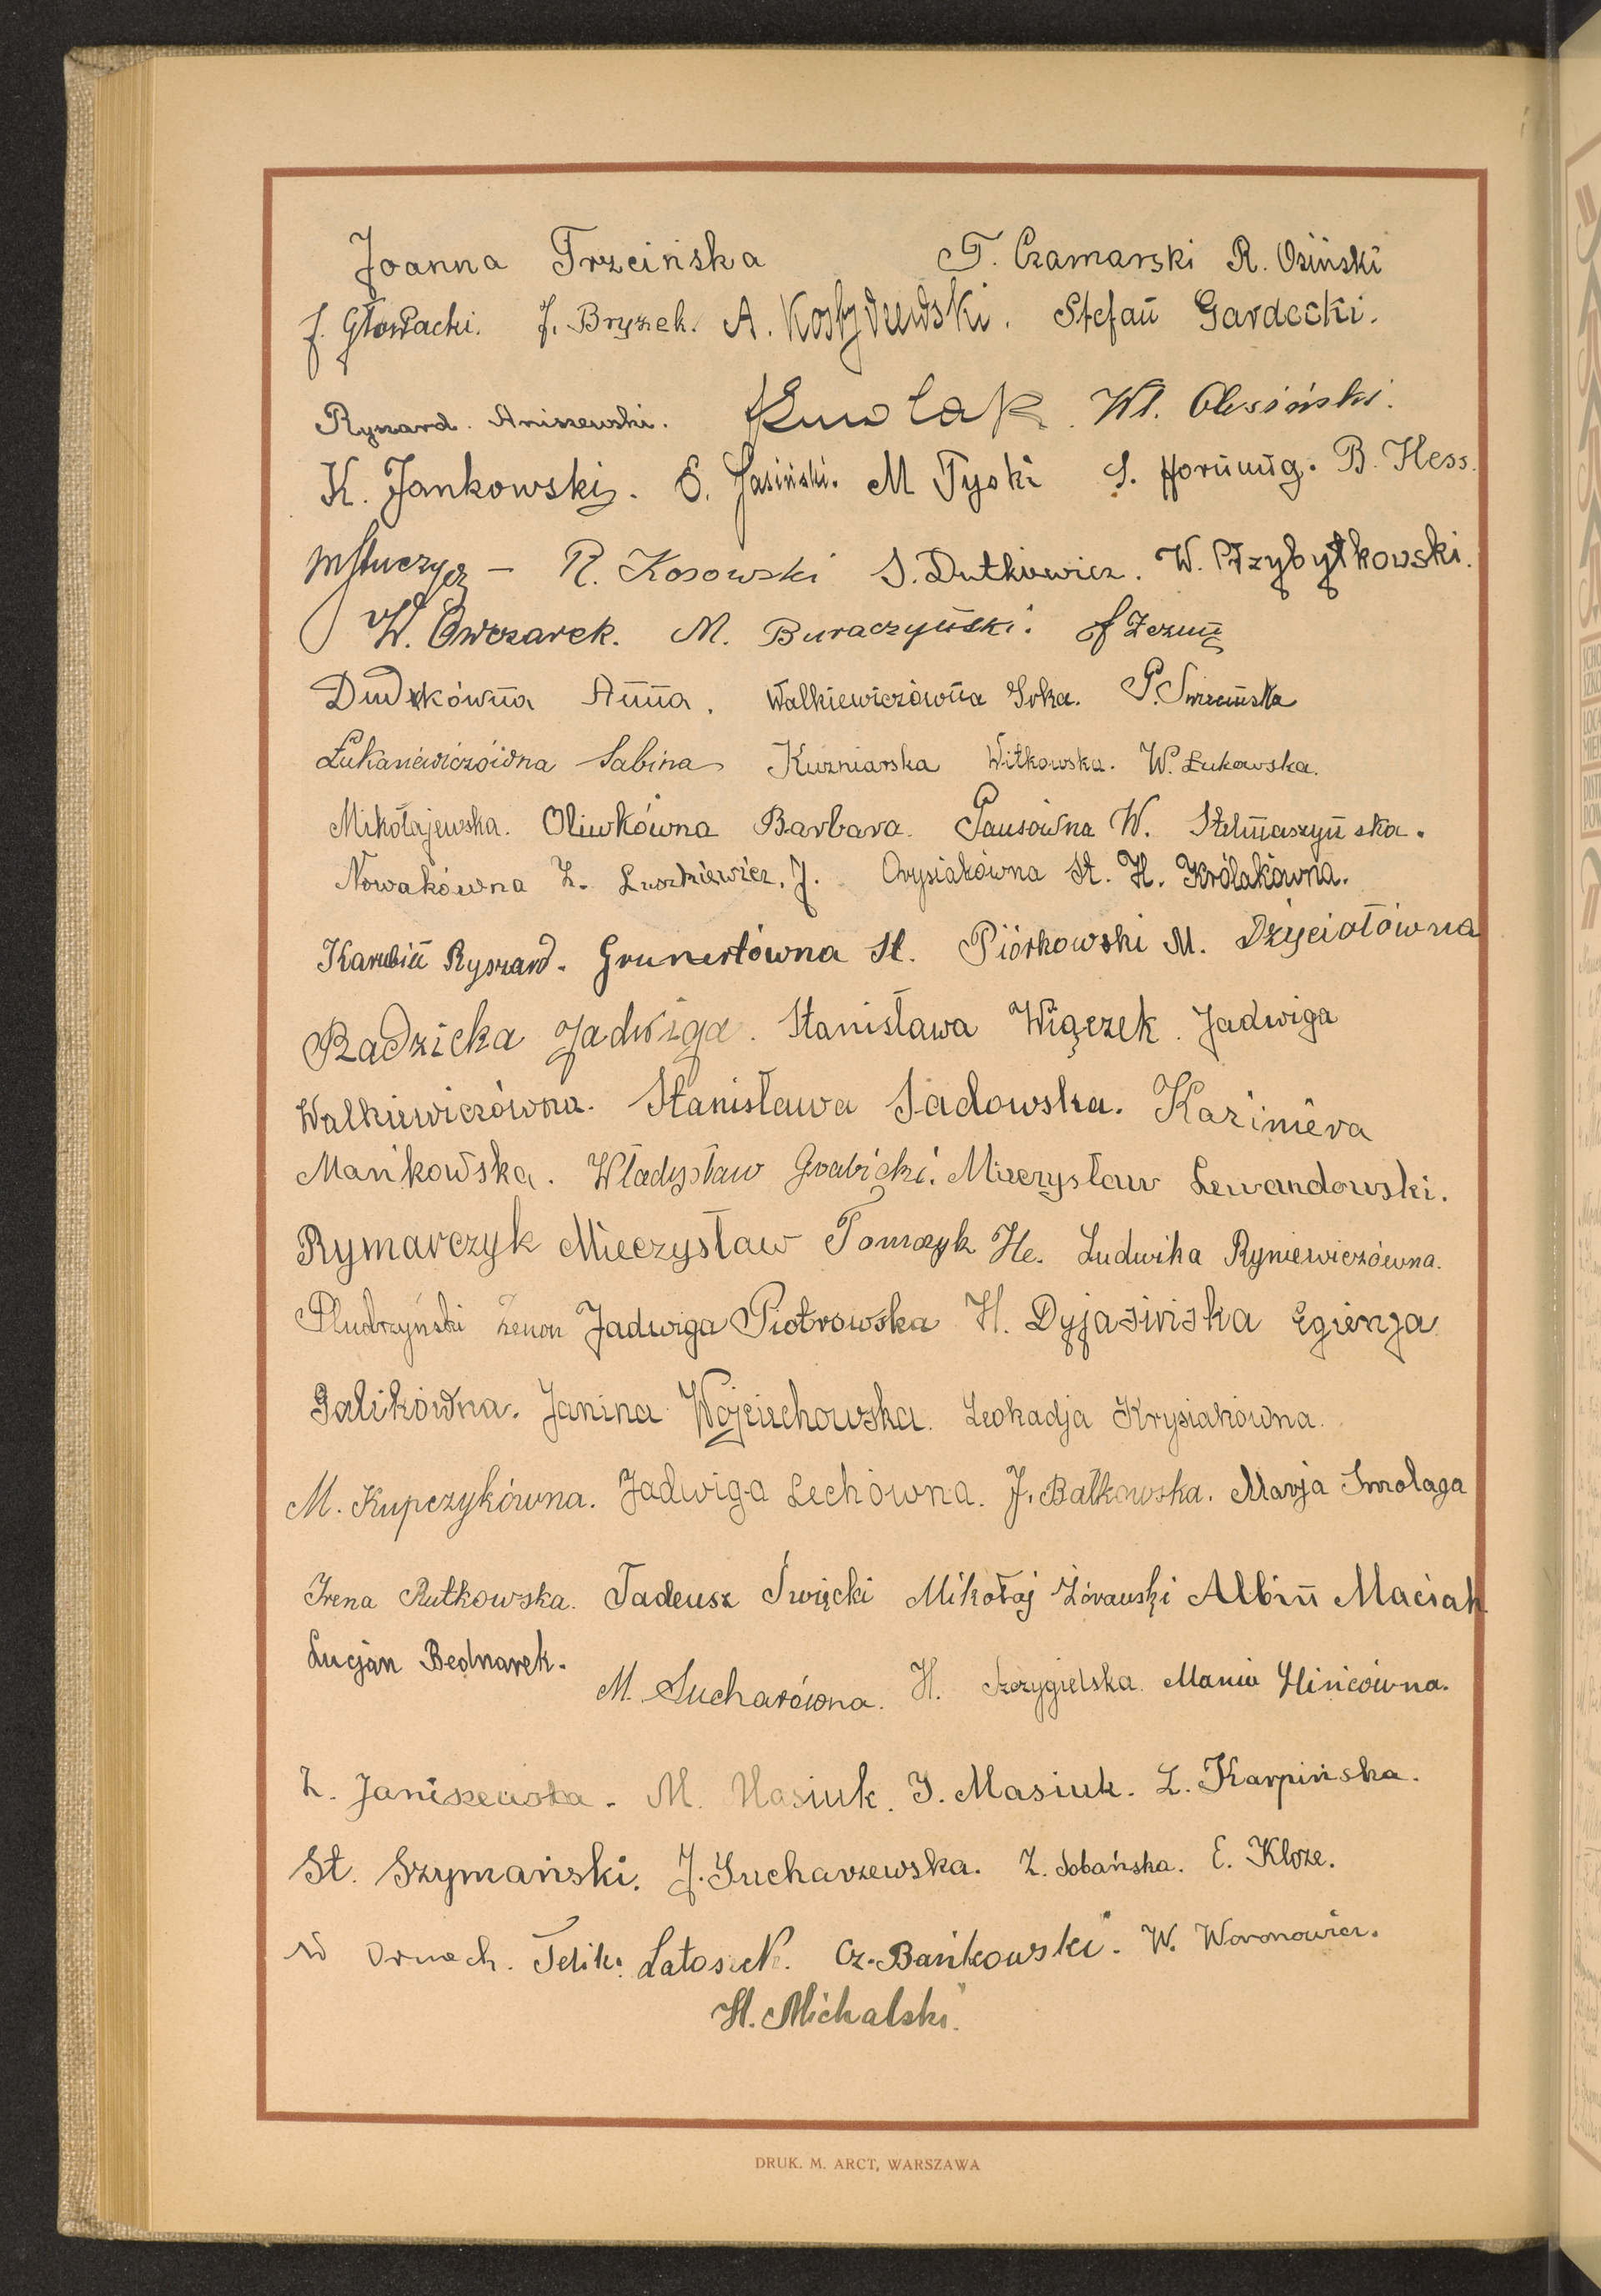 Joanna Trzcińska T. Czamarski R. Osiński
J. Głowacki. J. Bryzek. A. Stefan Gardecki.
Ryszard. Aniszewski. Wł. Olesiński.
K. Jankowski. E. Jasiński. M Tyski S. Hornung. B. Hess.
R. Kosowski S. Dutkiewicz. W. Przybytkowski.
W. Owczarek. M. Buraczyński.
Dudkówna Anna. Walkiewiczówna Irka.
Łukaniewiczówna Sabina Kuzniarska Witkowska. W. Łukowska.
Mikołajewska. Oliwkówna Barbara. Pausówna W. Stelmaszyńska.
Nowakówna Z. Luszkiewicz. J. St. H. Królakówna.
Karubin Ryszard. Grunertówna St. Piórkowski M. Dżyciołówna
Radzicka Jadwiga. Stanisława Wiączek. Jadwiga
Walkiewiczówna. Stanisława Sadowska. Kazimiera
Mańkowska. Władysław Grabicki. Mieczysław Lewandowski.
Rymarczyk Mieczysław Tomczyk He. Ludwika Ryniewiczówna.
Pludrzyński Zenon Jadwiga Piotrowska H. Dyjasińska Egienja
Galikówna. Janina Wojciechowska. Leokadja Krysiakówna.
M. Kupczykówna. Jadwiga Lechówna. J. Bałkowska. Marja Smolaga
Irena Rutkowska. Tadeusz Święcki Mikołaj Żórawski Albin Maciak
Lucjan Bednarek.
M. Sucharówna. H. Szczygielska. Mania Hincówna.
Z. Janiszewska. M. Masiuk. J. Masiuk. Z. Karpińska.
St. Szymański. J. Sucharzewska. Z. Sobańska. E. Kloze.
Latosek. Cz. Bańkowski. W. Woronowicz.
H. Michalski.
DRUK. M. ARCT, WARSZAWA